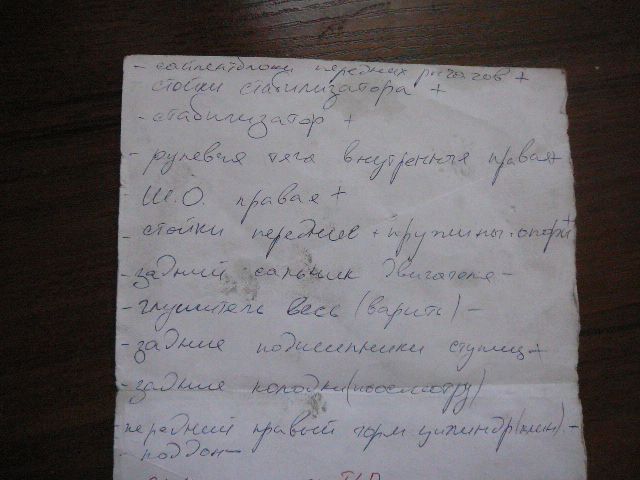 - сайлентблоки передних рычагов +
стойки стабилизатора +
- стабилизатор +
- рулевая тяга внутренняя правая+
- Ш.О. правая +
- стойки передние + пружины + опоры +
- задний сальник двигателя -
- глушитель весь (варить) -
- задние подшипники ступиц +
- задние колодки (по осмотру)
- передний правый торм цилиндр (клин) -
- поддон -